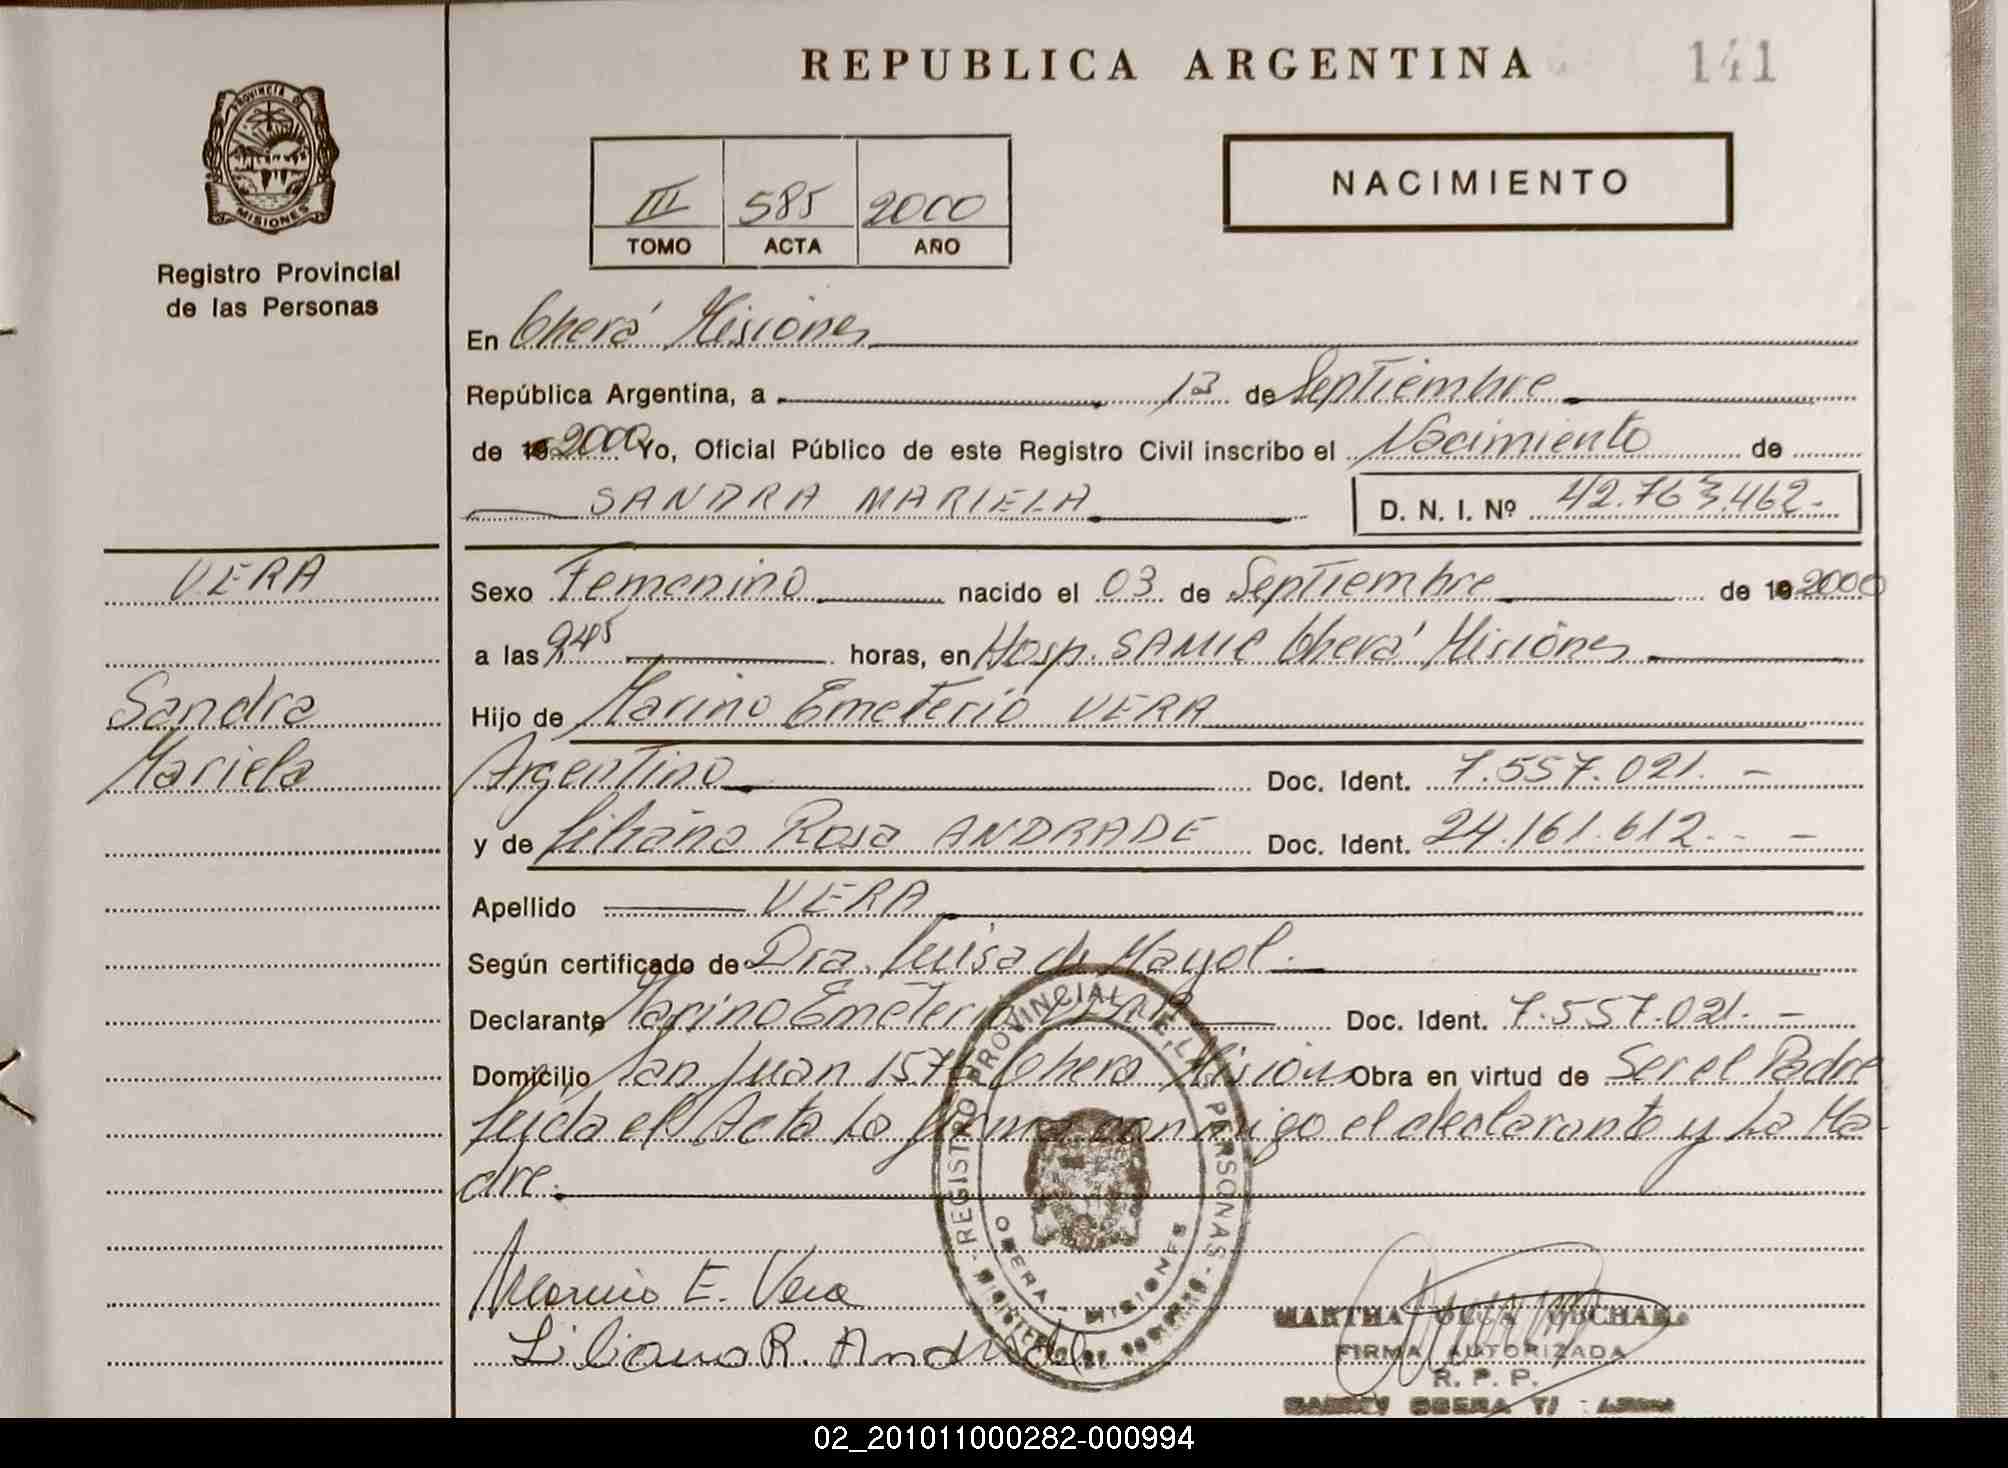 REPUBLICA ARGENTINA
141
PROVINCIA DE
MISIONES
Registro Provincial
de las Personas
III 585 2000
TOMO ACTA AÑO
NACIMIENTO
En Oberá Misiones
República Argentina, a 13 de Septiembre
de 19 2000 Yo, Oficial Público de este Registro Civil inscribo el Nacimiento de
SANDRA MARIELA D. N. I. Nº 42.763.462.-
VERA
Sandra
Mariela
Sexo Femenino nacido el 03 de Septiembre de 19 2000
a las 9,45 horas, en Hosp. SAMIC Oberá Misiones
Hijo de Marino Emeterio VERA
Argentino Doc. Ident. 7.557.021. -
y de Liliana Rosa ANDRADE Doc. Ident. 24.161.612. - -
Apellido VERA
Según certificado de Dra. Luisa de Mayol.
Declarante Marino Emeterio VERA Doc. Ident. 7.557.021. -
Domicilio San Juan 1576 Oberá Misiones Obra en virtud de Ser el Padre
Leída el Acta la firma conmigo el declarante y La Ma-
dre.
REGISTRO PROVINCIAL DE LAS PERSONAS
OBERA - MISIONES
Marino E. Vera
Liliana R. Andrade
MARTHA OLGA
FIRMA AUTORIZADA
R. P. P.
OBERA
02_201011000282-000994